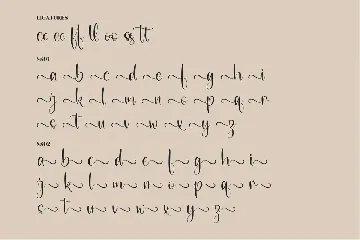 LIGATURES
cc ee ff ll oo ss tt
SS01
a b c d e f g h i
j k l m n o p q r
s t u v w x y z
SS02
a b c d e f g h i
j k l m n o p q r
s t u v w x y z